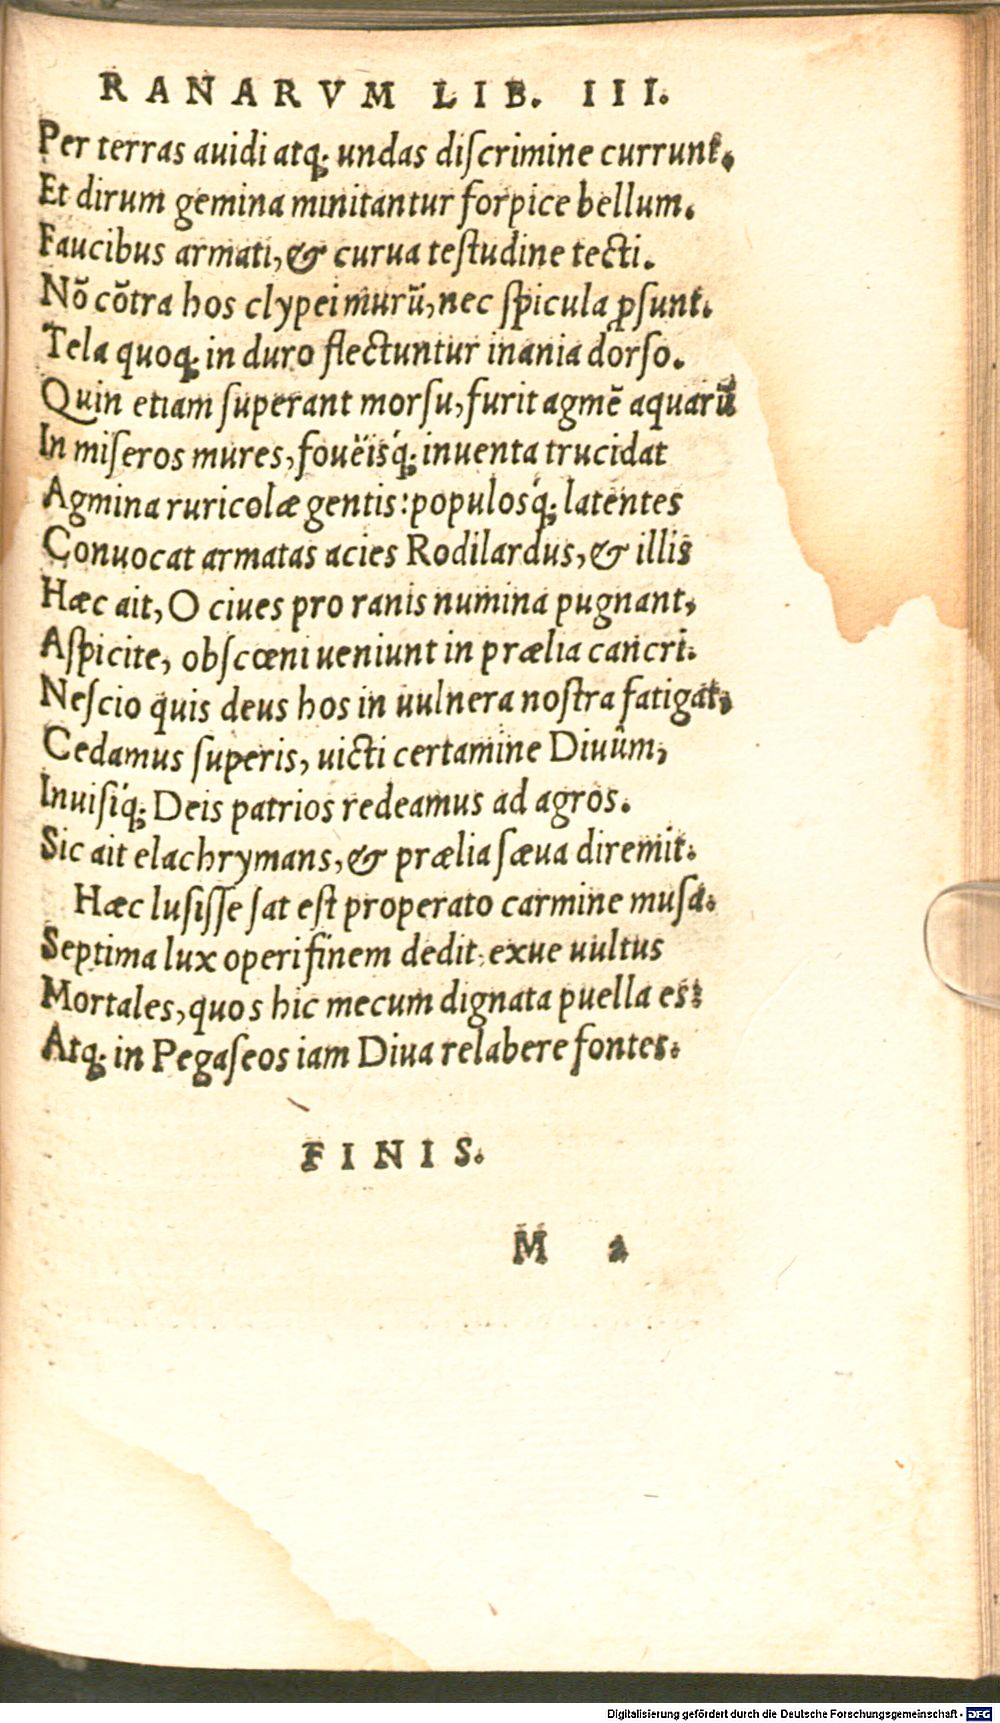 RANARVM LIB. III.
Per terras auidi atq; undas diſcrimine currunt,
Et dirum gemina minitantur forpice bellum.
Faucibus armati, & curua teſtudine tecti.
Nō cōtra hos clypei murū, nec ſpicula ꝓſunt.
Tela quoq; in duro flectuntur inania dorſo.
Quin etiam ſuperant morſu, furit agmē aquarū
In miſeros mures, foueïsq́; inuenta trucidat
Agmina ruricolæ gentis: populosq́; latentes
Conuocat armatas acies Rodilardus, & illis
Hæc ait, O ciues pro ranis numina pugnant,
Aſpicite, obſcœni ueniunt in prælia cancri.
Neſcio quis deus hos in uulnera noſtra fatigat,
Cedamus ſuperis, uicti certamine Diuûm,
Inuiſiq́; Deis patrios redeamus ad agros.
Sic ait elachrymans, & prælia ſæua diremit.
Hæc luſiſſe ſat eſt properato carmine muſa.
Septima lux operi finem dedit, exue uultus
Mortales, quos hic mecum dignata puella es:
Atq; in Pegaſeos iam Diua relabere fontes.
FINIS.
M 2
Digitalisierung gefördert durch die Deutsche Forschungsgemeinschaft - DFG